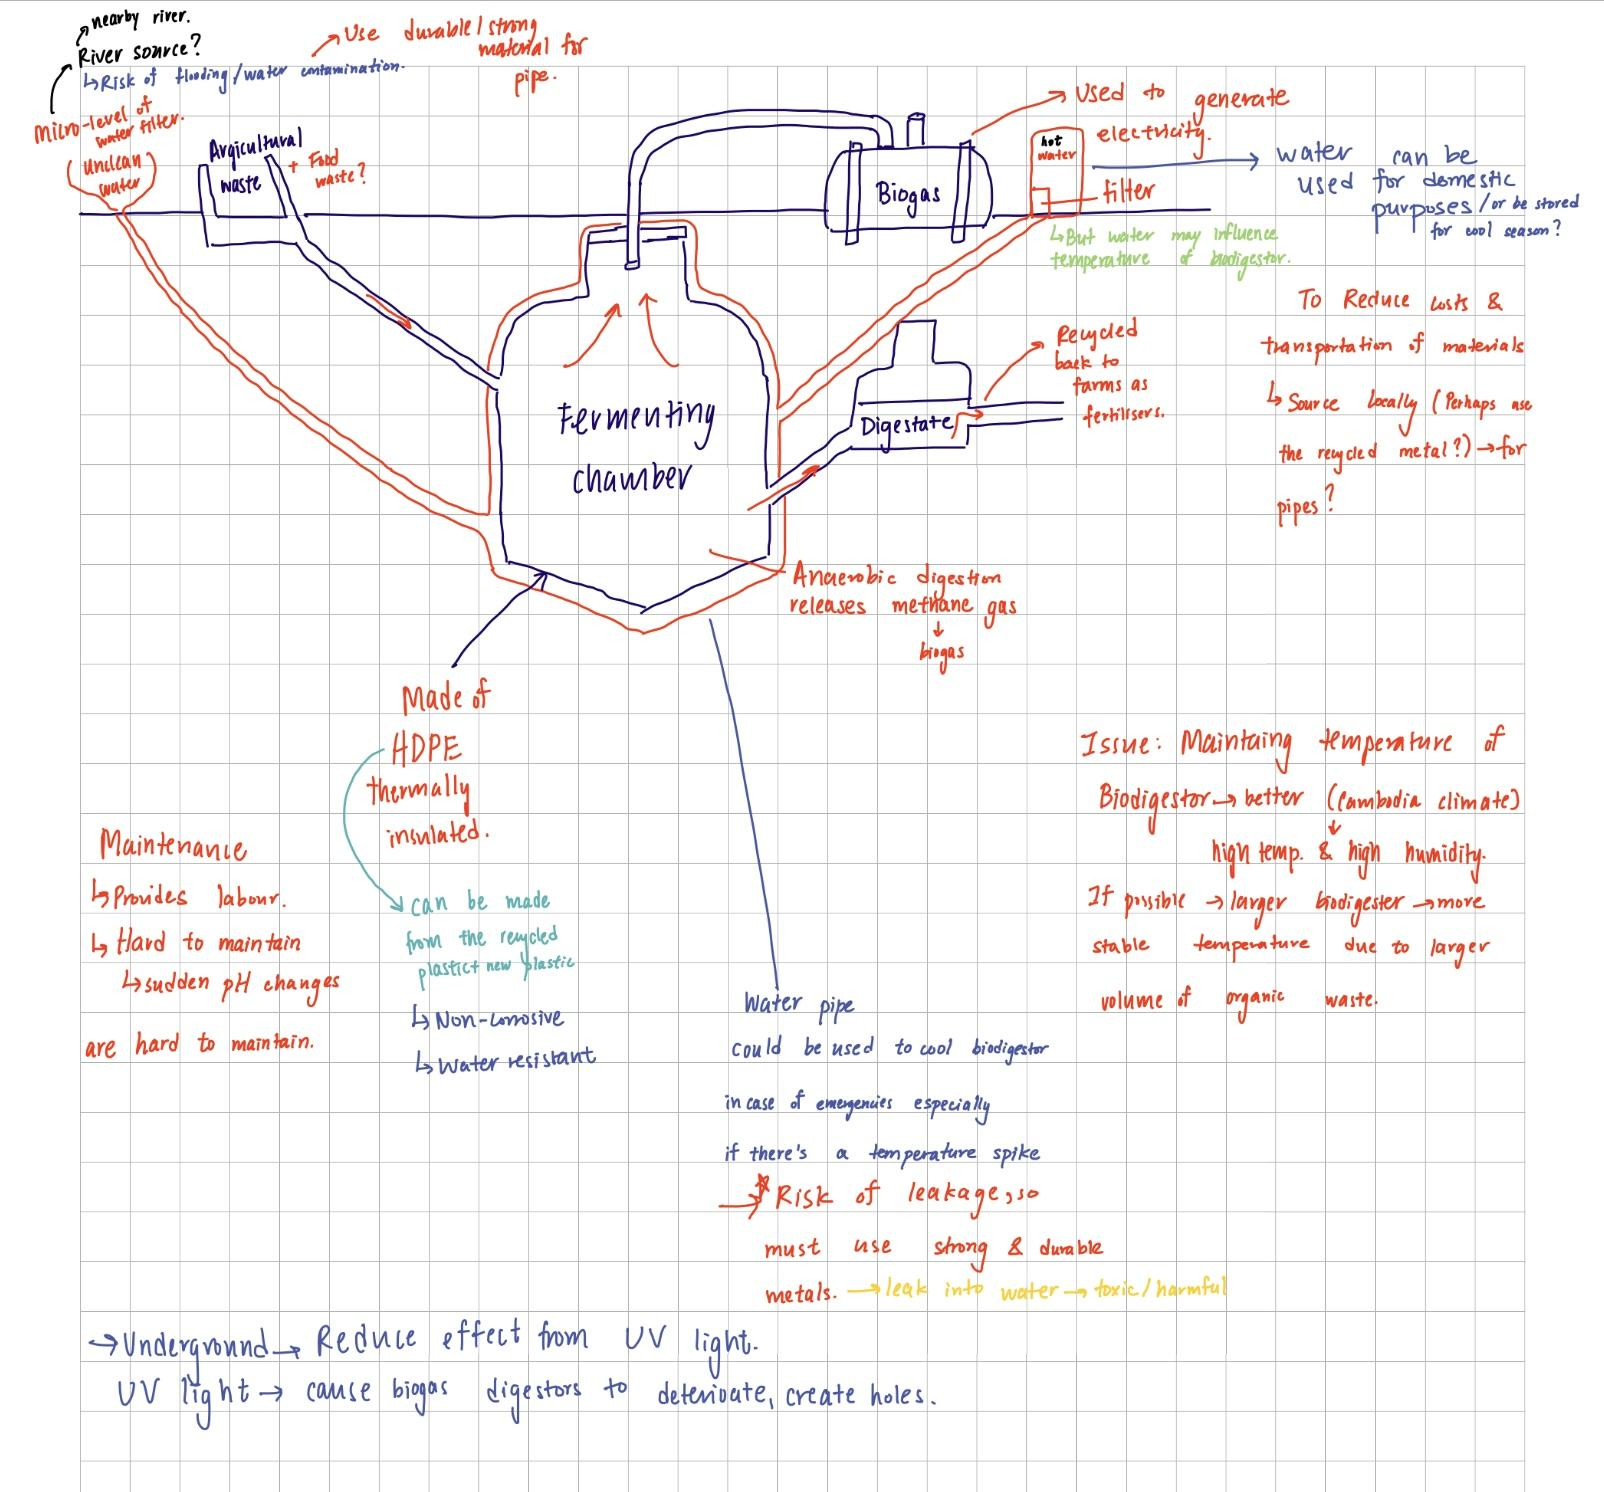 nearby river.
River source?
↳Risk of flooding/water contamination.
Use durable/strong
material for
pipe.
Micro-level of
water filter.
(Unclean
water)
Argicultural
waste
+ Food
waste?
Biogas
Used to generate
electricity.
hot
water
filter
water can be
used for domestic
purposes/or be stored
for cool season?
↳But water may influence
temperature of biodigestor.
To Reduce costs &
transportation of materials
↳ Source locally (Perhaps use
the recycled metal?) → for
pipes?
Recycled
back to
farms as
fertilisers.
Digestate
Fermenting
chamber
Anaerobic digestion
releases methane gas
↓
biogas
Made of
HDPE
thermally
insulated.
can be made
from the recycled
plastic+ new plastic
↳ Non-corrosive
↳ Water resistant
Maintenance
↳Provides labour.
↳ Hard to maintain
↳sudden pH changes
are hard to maintain.
Issue: Maintaing temperature of
Biodigestor → better (Cambodia climate)
↓
high temp. & high humidity.
If possible → larger biodigester → more
stable temperature due to larger
volume of organic waste.
Water pipe
could be used to cool biodigestor
in case of emergencies especially
if there's a temperature spike
→* Risk of leakage, so
must use strong & durable
metals. → leak into water → toxic/harmful
→ Underground → Reduce effect from UV light.
UV light → cause biogas digestors to deteriovate, create holes.